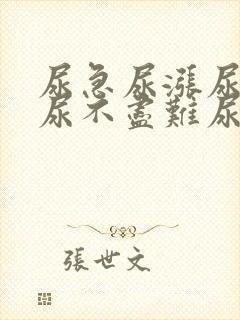 尿急尿漲尿
尿不盡難尿
張世文